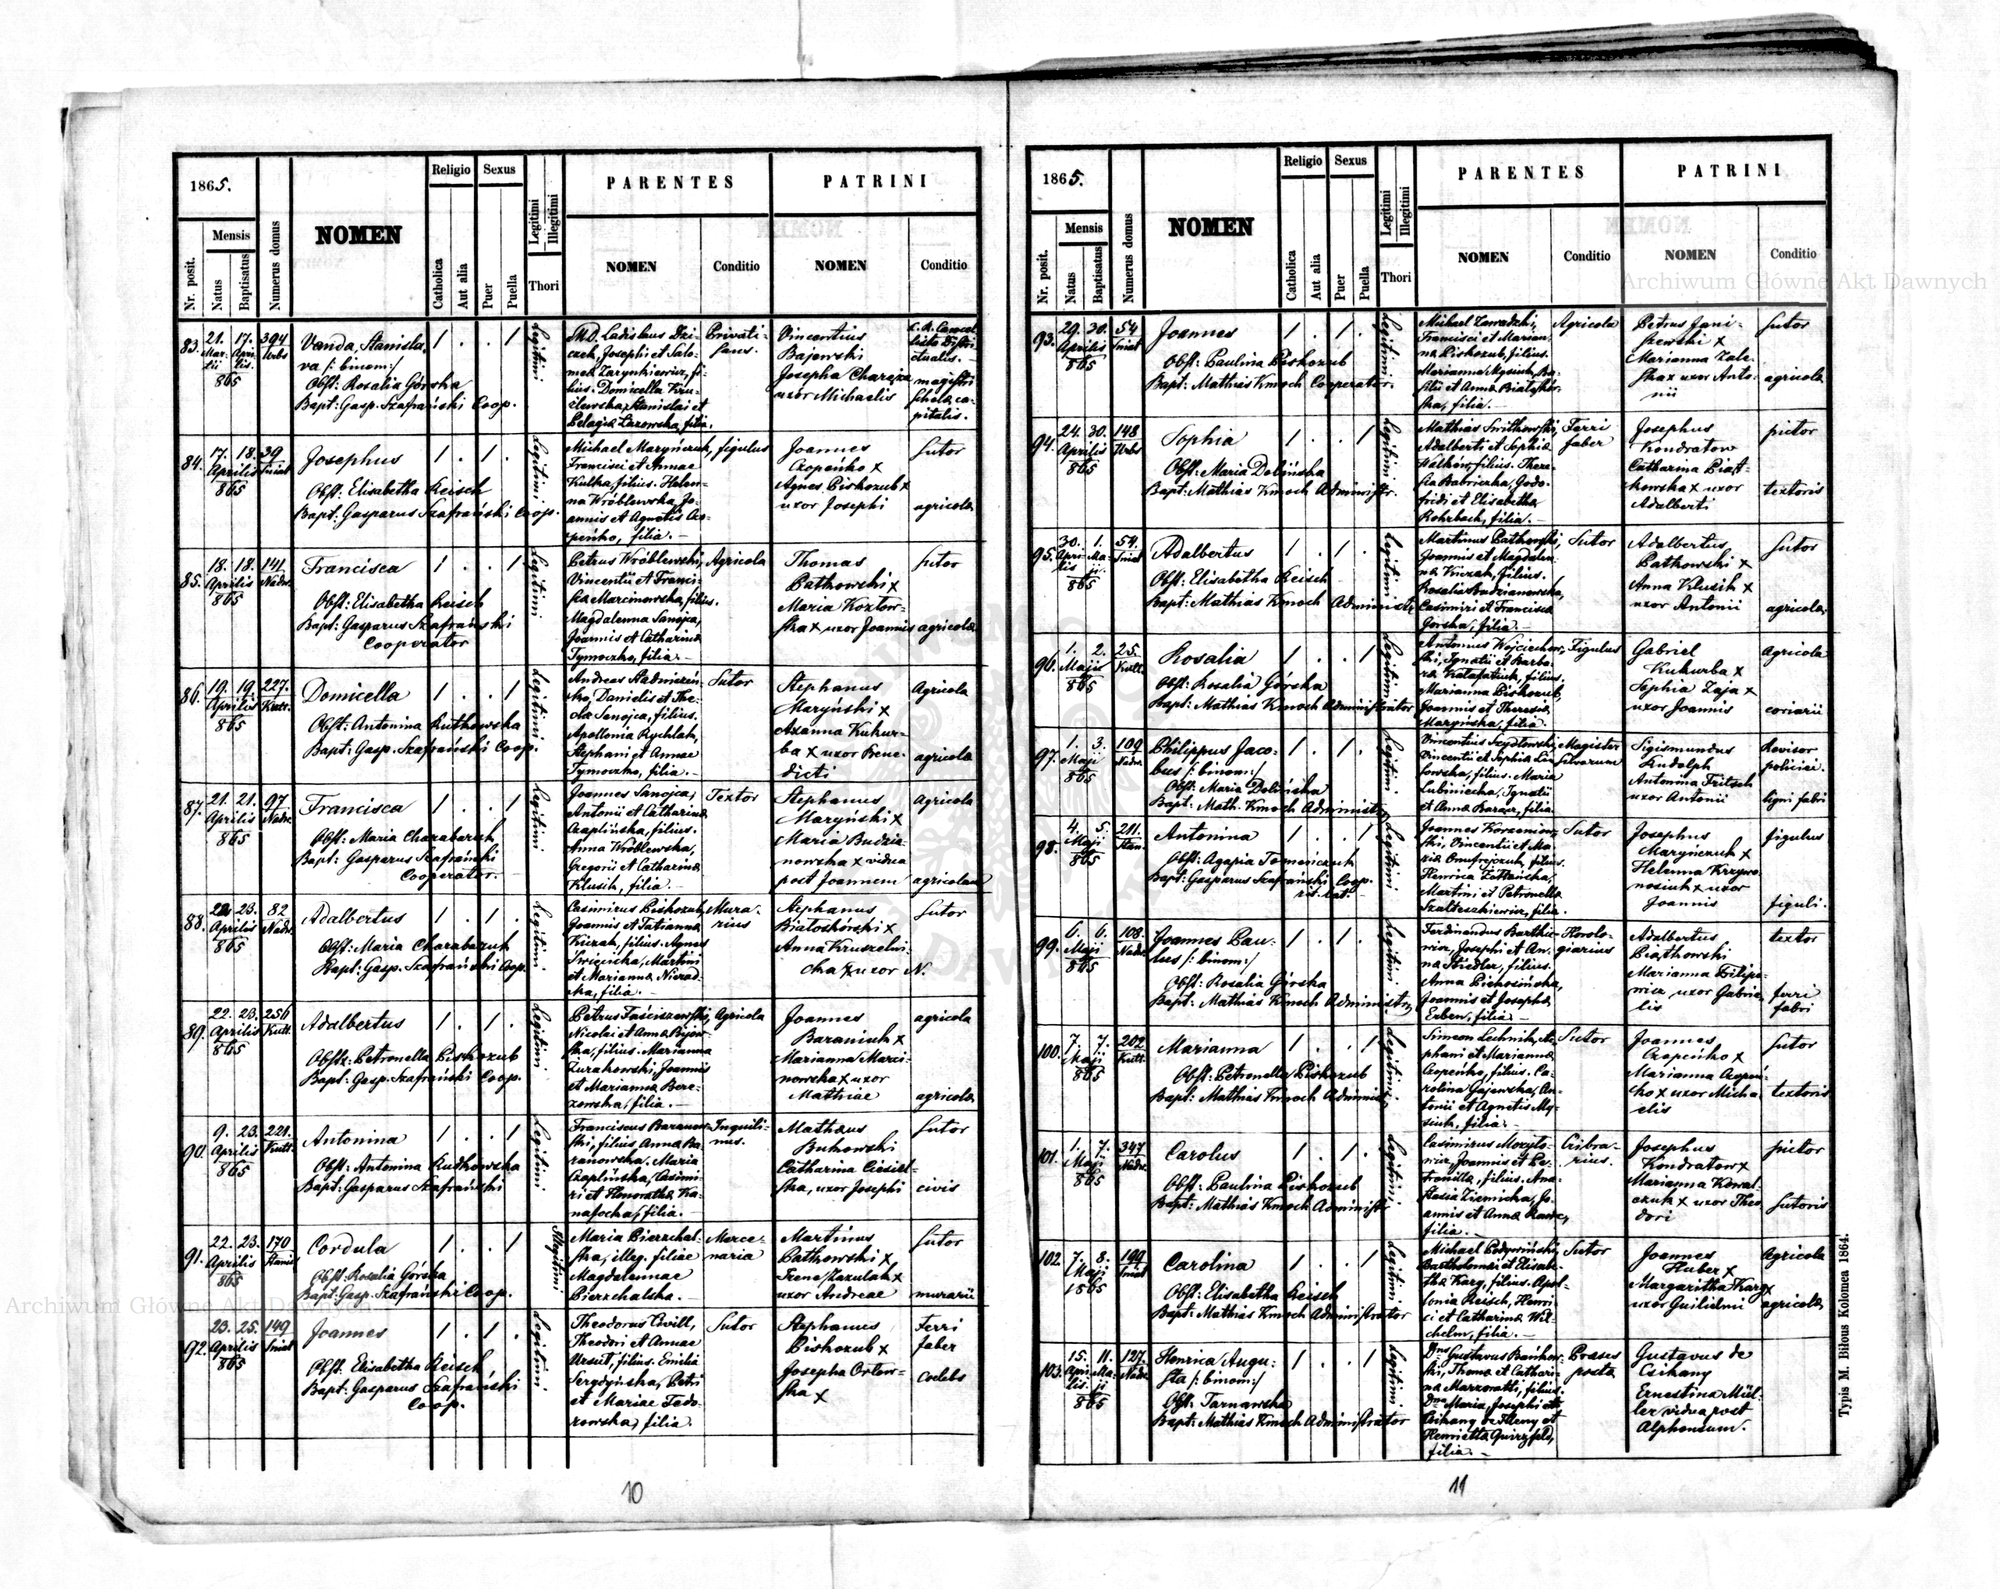 1865.
Nr. posit.
Mensis
Natus
Baptisatus
Numerus domus
NOMEN
Religio
Catholica
Aut alia
Sexus
Puer
Puella
Legitimi
Illegitimi
Thori
PARENTES
NOMEN
Conditio
PATRINI
NOMEN
Conditio
83. 21. 17. 394
Martii Aprilis Urbs
865
Vanda, Stanisla-
va /: binom:/
Obst: Rosalia Górska
Bapt: Gasp. Szafrański Coop.
Legitimi
Privati-
Vincentius
Bajewski
Josepha
uxor Michaelis
magistri
84. 17. 18. 39
Aprilis
865
Josephus
Obst: Elisabetha Reisch
Bapt: Gasparus Szafrański Coop.
Legitimi
Michael Maryńczuk,
Francisci et Annae
Kulka, filius. Helen-
na Wróblewska, Jo-
annis et Agnetis Czo-
peńko, filia.—
figulus
Joannes
Czopenko x
Agnes Piskozub x
uxor Josephi
sutor
agricola
85. 18. 18. 141
Aprilis Nadw.
865
Francisca
Obst: Elisabetha Reisch
Bapt: Gasparus Szafrański
Cooperator
Legitimi
Petrus Wróblewski,
Vincentii et Francis-
ca Marcinowska, filius.
Magdalenna Sanojca,
Joannis et Catharina
Tymoczko, filia.—
Agricola
Thomas
Patkowski x
Maria Kozłow-
ska x uxor Joannis
Sutor
agricola
86. 19. 19. 227.
Aprilis Kutt.
865
Domicella
Obst: Antonina Rutkowska
Bapt: Gasp. Szafrański Coop.
Legitimi
Danielis et The-
cla Sanojca, filius.
Apollonia Rychlak,
Stephani et Annae
Tymoczko, filia.—
Sutor
Stephanus
Maryński x
Axanna Kukur-
ba x uxor Bene-
dicti
Agricola
agricola
87. 21. 21. 97
Aprilis Nadw.
865
Francisca
Obst: Maria Charabaruk
Bapt: Gasparus Szafrański
Cooperator.—
Legitimi
Joannes Sanojca,
Antonii et Catharina
Czaplińska, filius.
Anna Wróblewska,
Gregorii et Catharina
Klusik, filia.—
Textor
Stephanus
Maryński x
Maria Budzia-
nowska x vidua
post Joannem
Agricola
agricolam
88. 23. 82
Aprilis Nadw.
865
Adalbertus
Obst: Maria Charabaruk
Bapt: Gasp. Szafrański Coop.
Legitimi
Casimirus Piskozub,
Joannis et Tatianna
Kiczak, filius. Agnes
et Marianna
filia.
Mura-
rius
Stephanus
Białoskórski x
Anna
uxor N.
Sutor
89. 22. 23. 256
Aprilis Kutt.
865
Adalbertus
Obst: Petronella Piskozub
Bapt: Gasp. Szafrański Coop.
Legitimi
filius. Marianna
Joannis
et Marianna Bere-
zowska, filia.—
Agricola
Joannes
Baraniuk x
Marianna Marci-
nowska x uxor
Mathiae
agricola
agricola
90. 9. 23. 221.
Aprilis Kutt.
865
Antonina
Obst: Antonina Rudkowska
Bapt: Gasparus Szafrański
Legitimi
Franciscus Baranow-
ski, filius Anna Ba-
ranowska. Maria
Czaplińska, Casimi-
ri et Honoratha Ka-
nafocka, filia.—
Inquili-
nus.
Mathaus
Bukowski
Catharina Ciesiel-
ska, uxor Josephi
Sutor
civis
91. 22. 23. 170
Aprilis
865
Cordula
Obst: Rosalia Górska
Bapt: Gasp. Szafrański Coop.
Illegitimi
Maria Pierzchal-
ska, illeg. filiae
Magdalennae
Pierzchalska.
Merce-
naria
Martinus
Patkowski x
Irena Zazulak x
uxor Andreae
Sutor
murarii
92. 23. 25. 149
Aprilis
865
Joannes
Obst: Elisabetha Reisch
Bapt: Gasparus Szafrański
Coop.
Legitimi
Theodorus Cwill,
Theodori et Annae
filius. Emilia
Petri
et Mariae Fedo-
rowska, filia.
Sutor
Stephanus
Piskozub x
Josepha Orlow-
ska x
Ferri
faber
coelebs
10
1865.
Nr. posit.
Mensis
Natus
Baptisatus
Numerus domus
NOMEN
Religio
Catholica
Aut alia
Sexus
Puer
Puella
Legitimi
Illegitimi
Thori
PARENTES
NOMEN
Conditio
PATRINI
NOMEN
Conditio
93. 29. 30. 54
Aprilis
865
Joannes
Obst: Paulina Piskozub
Bapt: Mathias Kmoch Cooperator.
Legitimi
Michael Zawadzki,
Francisci et Marian-
na Piskozub, filius.
Marianna Mysiuk,
filia.—
Agricola
Petrus Jani-
szewski x
Marianna Zale-
ska x uxor Anto-
nii
Sutor
agricola
94. 24. 30. 148
Aprilis Urbs
865
Sophia
Obst: Maria Dolińska
Bapt: Mathias Kmoch Administr.
Legitimi
Adalberti et Sophia
filius. There-
sia
et Elisabetha
Rohrbach, filia.—
Ferri
faber
Josephus
Kondratow
Catharina Piat-
kowska x uxor
Adalberti
pictor
textoris
95. 30. 1. 54.
Aprilis Maji
865
Adalbertus
Obst: Elisabetha Reisch
Bapt: Mathias Kmoch Administr.
Legitimi
Martinus Patkowski,
Joannis et Magdalen-
na Kiczak, filius.
Rosalia Budzianowska,
Casimiri et Francisca
Górska, filia.—
Sutor
Adalbertus
Patkowski x
Anna Klusik x
uxor Antonii
Sutor
agricola
96. 1. 2. 25.
Maji Kutt.
865
Rosalia
Obst: Rosalia Górska
Bapt: Mathias Kmoch Administrator
Legitimi
Antonius Wojciechow-
ski, Ignatii et Barba-
ra Kalafatiuk, filius.
Marianna Piskozub,
Joannis et Theresia
Maryńska, filia
Figulus
Gabriel
Kukurba x
Sophia Zaja x
uxor Joannis
agricola
coriarii
97. 1. 3. 109
Maji Nadw.
865
Philippus Jaco-
bus /: binom:/
Obst: Maria Dolińska
Bapt: Math. Kmoch Administr.
Legitimi
Vincentius Szydłowski,
Vincentii et Sophia Lin-
kowska, filius. Maria
Lubiniecka, Ignatii
et Anna Baracz, filia.
Magister
silvarum
Sigismundus
Rudolph
Antonina Fritsch
uxor Antonii
Revisor
policiei.
ligni fabri
98. 4. 5. 211.
Maji
865
Antonina
Obst: Agapia Tomeńczuk
Bapt: Gasparus Szafrański Coop.
rit. lat.
Legitimi
Joannes Korzeniow-
ski, Vincentii et Ma-
ria Onufrejczuk, filius.
Henrica
Martini et Petronella
filia.
Sutor
Josephus
Maryńczuk x
Helenna Krzywo-
nosiuk x uxor
Joannis
figulus
figuli.
99. 6. 6. 108.
Maji Nadw.
865
Joannes Pau-
lus /: binom:/
Obst: Rosalia Górska
Bapt: Mathias Kmoch Administr.
Legitimi
Ferdinandus Barthie-
wicz, Josephi et An-
na Stiedler, filius.
Anna
Joannis et Josepha
Erben, filia.—
Horolo-
giarius
Adalbertus
Piątkowski
Marianna Filipo-
wicz uxor Gabrie-
lis
textor
ferri
fabri
100. 7. 7. 202
Maji Kutt.
865
Marianna
Obst: Petronella Piskozub
Bapt: Mathias Kmoch Administr.
Legitimi
Simeon Luchnik, Ste-
phani et Marianna
Czopeńko, filius. Ca-
rolina Gajewska, An-
tonii et Agnetis My-
siuk, filia.—
Sutor
Joannes
Czopeńko x
Marianna Czopeń-
ko x uxor Micha-
elis
Sutor
textoris
101. 1. 7. 347
Maji Nadw.
865
Carolus
Obst: Paulina Piskozub
Bapt: Mathias Kmoch Administr.
Legitimi
Joannis et Pe-
tronilla, filius. Ana-
stasia Ziemicka, Jo-
annis et Anna
filia.—
Cribra-
rius.
Josephus
Kondratow x
Marianna Kowal-
czuk x uxor Theo-
dori
pictor
Sutoris
102. 7. 8. 199
Maji
1865
Carolina
Obst: Elisabetha Reisch
Bapt: Mathias Kmoch Administrator
Legitimi
Bartholomei et Elisabe-
tha Karg, filius. Apol-
lonia Reisch, Henri-
ci et Catharina Wil-
chelm, filia.—
Sutor
Joannes
Huber x
Margaritha Karg x
uxor Guilielmi
Agricola
agricola
103. 15. 11. 127.
Aprilis Maji Nadw.
865
Henrica Augu-
sta /: binom:/
Obst: Tarnawska
Bapt: Mathias Kmoch Administrator
Legitimi
Dns Gustavus Bańkow-
ski, Thoma et Cathari-
na Marzoratti, filius.
Dna Maria, Josephi et
Csikany de Kleny et
Henrietta Quirzfeld,
filia.—
Praeses
posta
Gustavus de
Csikany
Ernestina Mül-
ler vidua post
Alphonsum.
Typis M. Biłous Kolomea 1864.
11
Archiwum Główne Akt Dawnych
Archiwum Główne Akt Dawnych